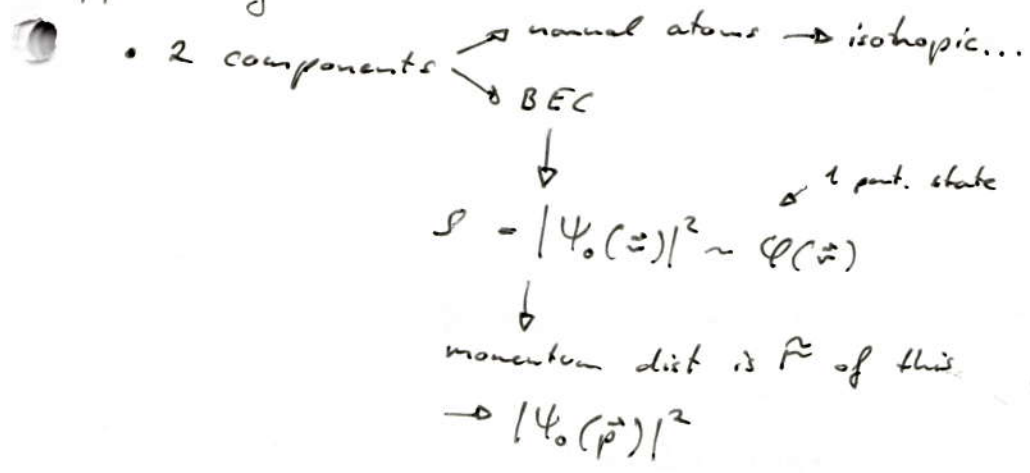 • 2 components → normal atoms → isotropic...
→ BEC
↓
1 part. state
ρ = |Ψ₀(r⃗)|² ~ φ(r⃗)
↓
momentum dist is F̃ of this
→ |Ψ₀(p⃗)|²